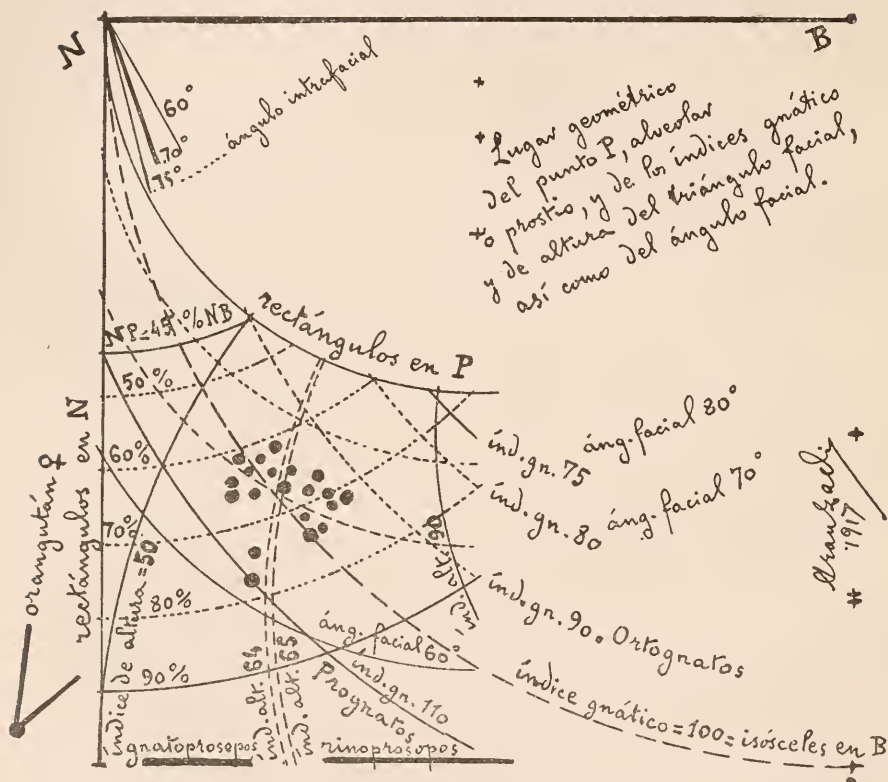 N
B
60°
70°
75°
ángulo intrafacial
Lugar geométrico
del punto P, alveolar
o prostio, y de los índices gnático
y de altura del triángulo facial,
así como del ángulo facial.
NP=45%NB
rectángulos en P
50%
60%
70%
80%
90%
orangután ♀
rectángulos en N
índice de altura=50
ind. alt. 64
ind. alt. 65
ind. alt. 90
índ. gn. 75
áng. facial 80°
índ. gn. 80
áng. facial 70°
índ. gn. 90. Ortognatos
áng. facial 60°
índ. gn. 110
Prognatos
índice gnático=100=isósceles en B
gnatoprosopos
rinoprosopos
1917